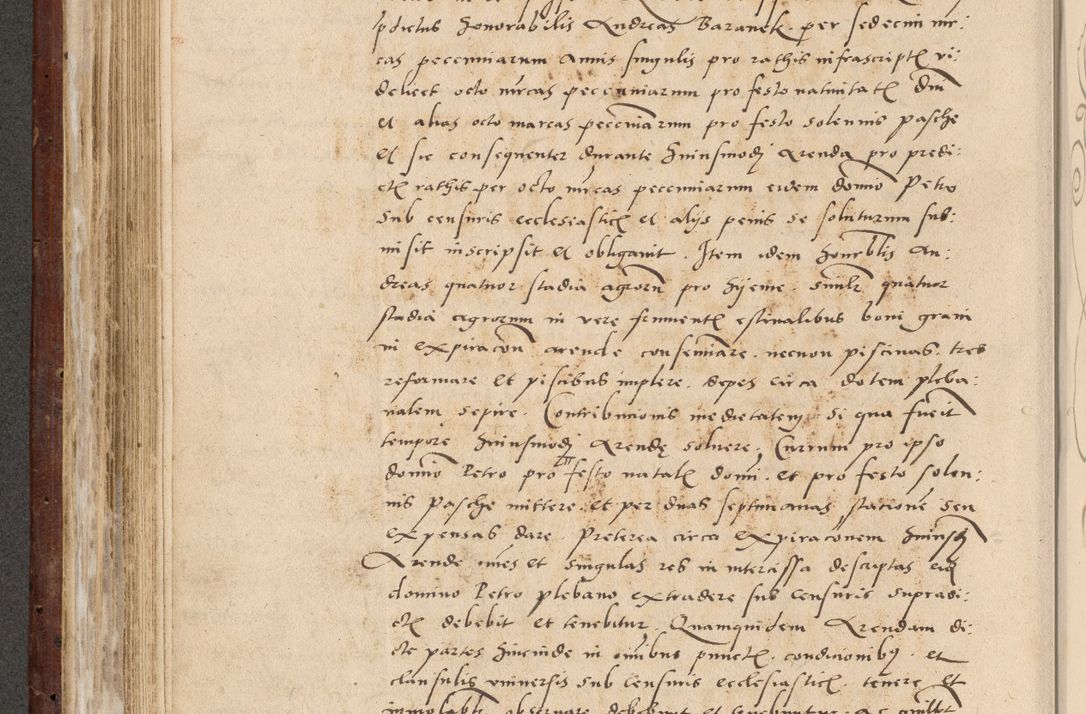 pdictus Honorabilis Andreas Baranek per sedecim mr:
cas pecuniarum annis singulis pro rathis infrascriptis vi:
delicet octo mrcas pecuniarum pro festo nativitatis Dni
et alias octo marcas pecuniarum pro festo solennis pasche
Et sic consequenter durante huiusmodi Arenda pro predi:
ctis rathis per octo mrcas pecuniarum eidem domino Petro
Sub censuris ecclesiasticis et alijs penis se soluturum sub:
misit inscripsit et obligavit. Item idem honorblis An:
dreas quatuor stadia agrorum pro hyeme. similr quatuor
stadia agrorum in vere frumentis estivalibus boni grani
in expiracon arende conseminare. necnon piscinas tres
reformare et piscibus implere. Sepes circa dotem pleba:
nalem sepire. Contribucionis medietatem si qua fuerit
tempore huiusmodi Arende solvere. Currum pro ipso
domino Petro pro festo natalis domi. et pro festo solen:
nis Pasche mittere. et per duas septimanas stacione seu
expensas dare. Preterea circa expiraconem huiusmodi
Arende omnes et singulas res in intercissa descriptas eidem
domino Petro plebano extradere sub censuris supradi:
ctis debebit et tenebitur. Quamquidem Arendam di:
cte partes hincinde in omnibus punctis. condicionibus. et
clausulis universis sub censuris ecclesiasticis. tenere et
observare debebunt et tenebuntur. Ac